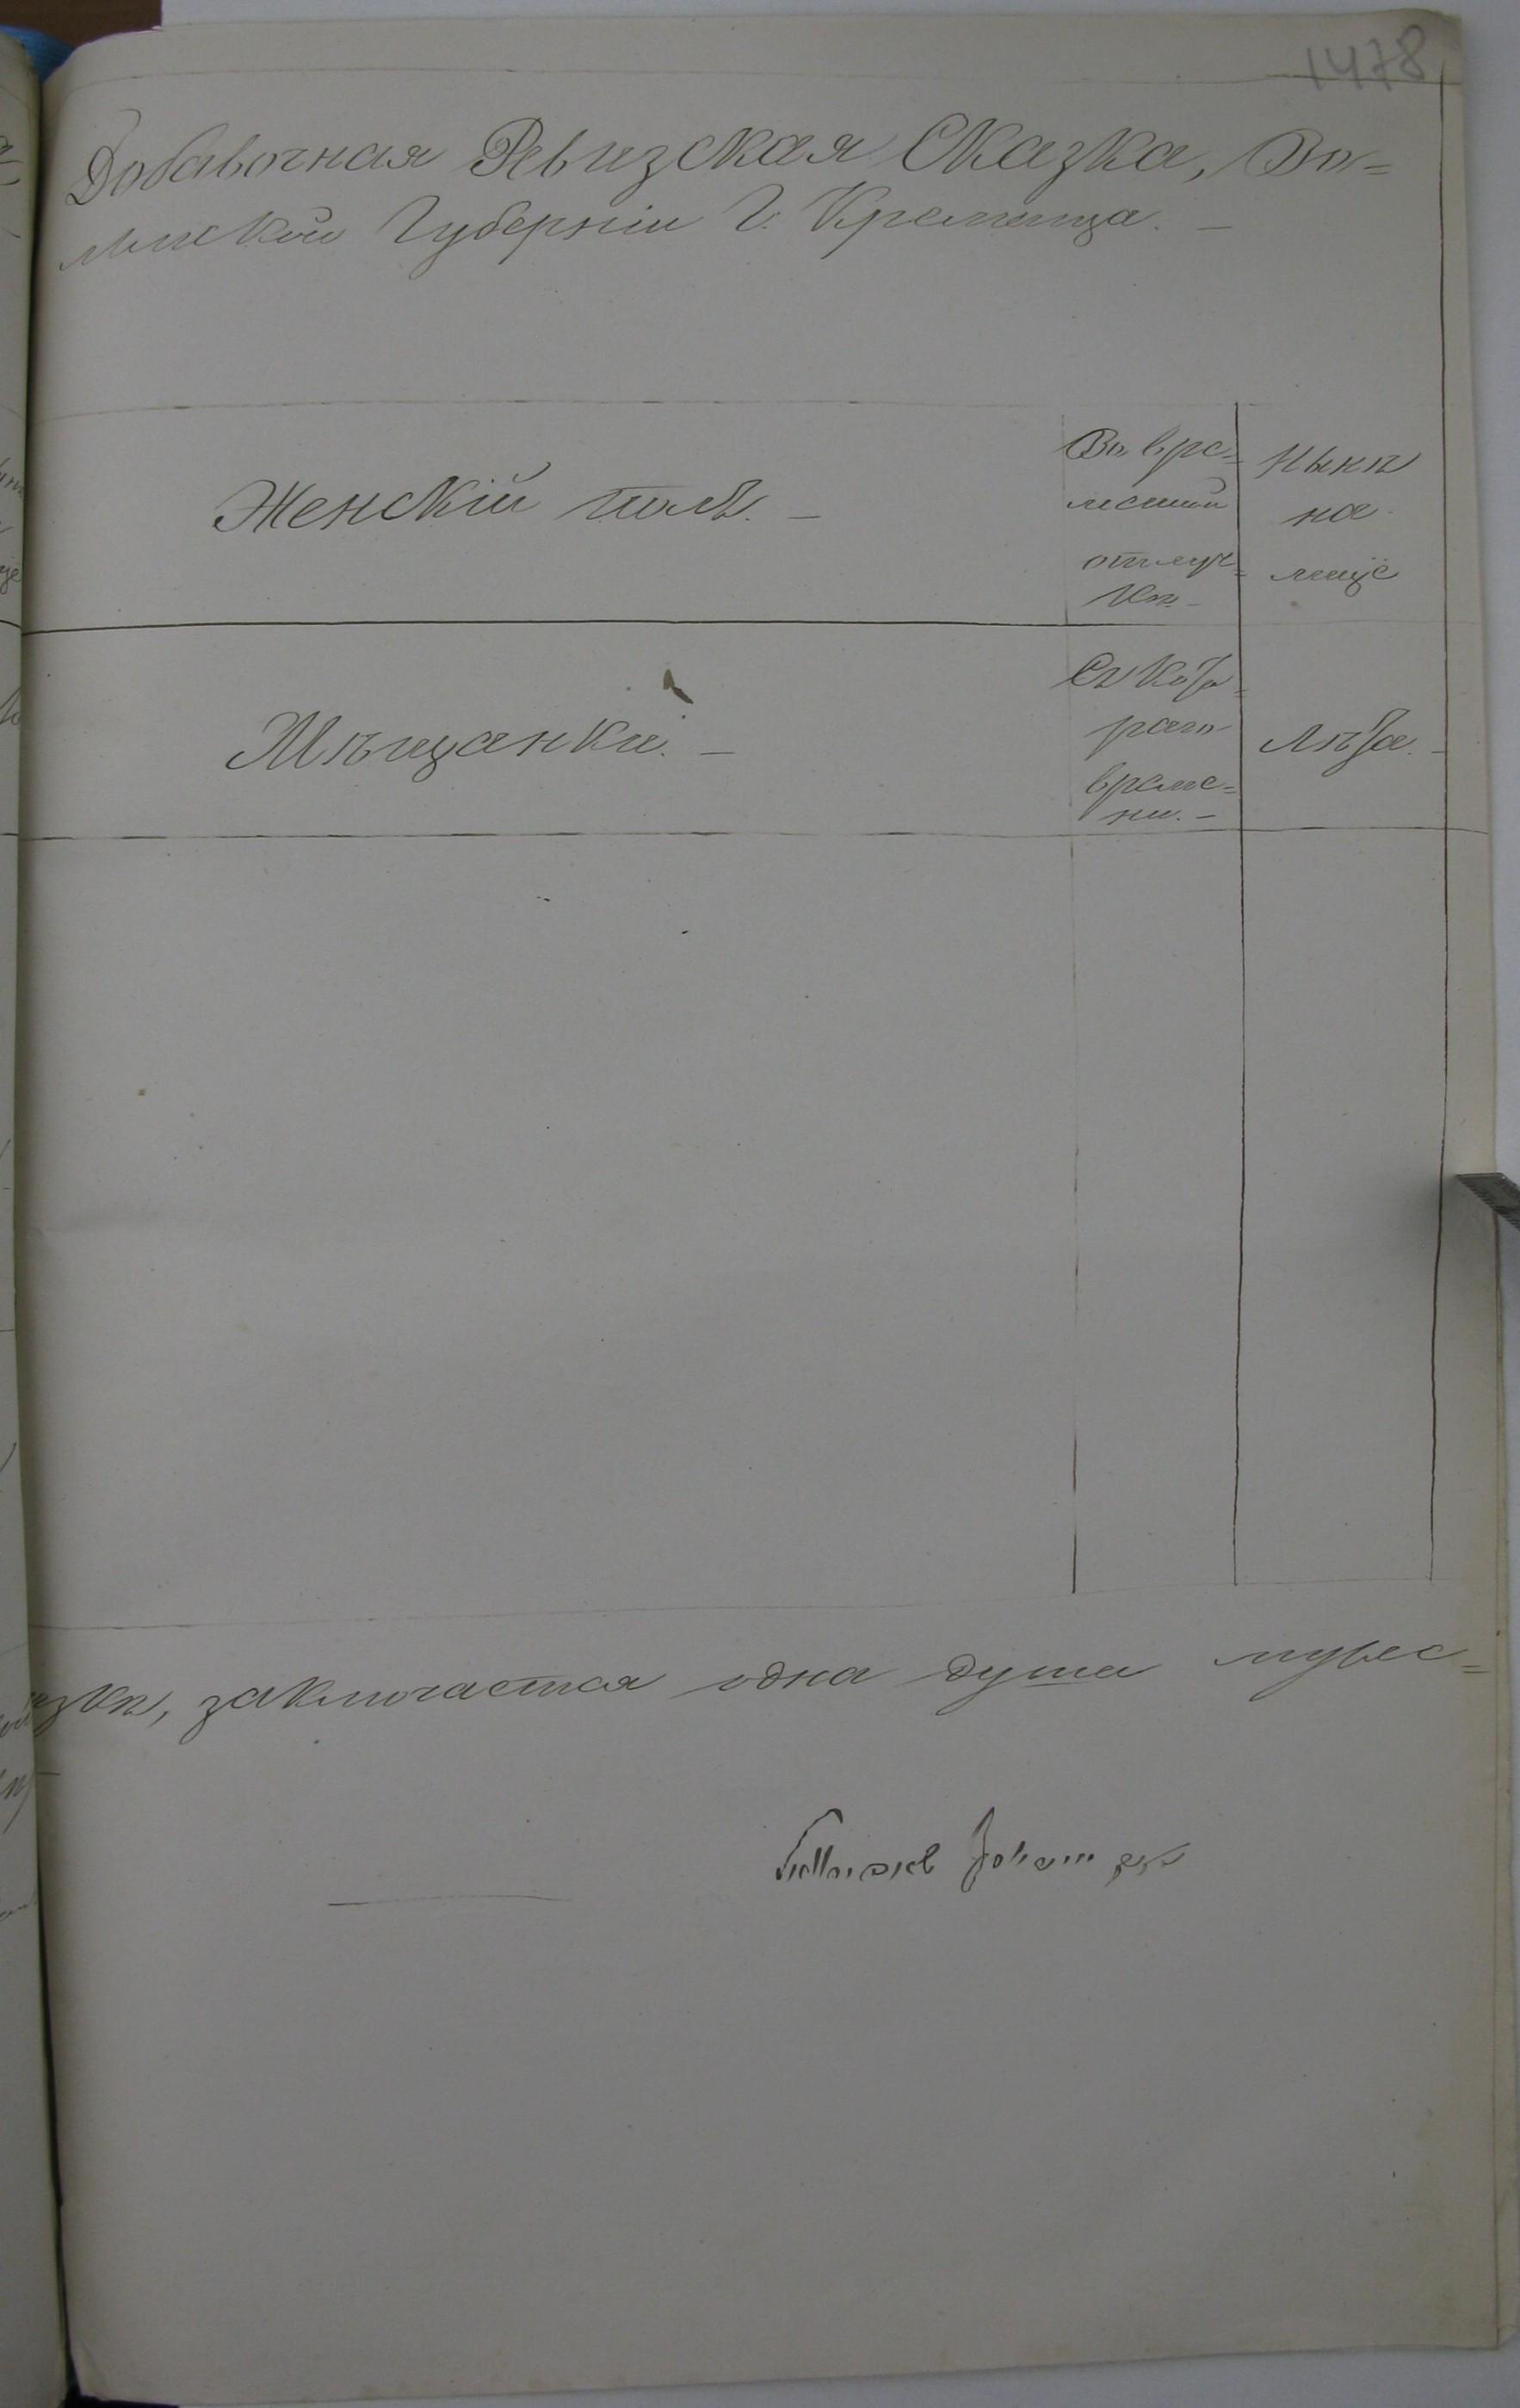 1478
Добавочная Ревизская Сказка, Во=
лынской Губернiи Г. Кременца. —
Женскiй полъ. —
Во вре=
менной
отлуч=
кѣ. —
Нынѣ
на
лице
Мѣщанки. —
Съ кото=
раго
време=
ни. —
Лѣта. —
зкѣ, заключается одна душа мужес=